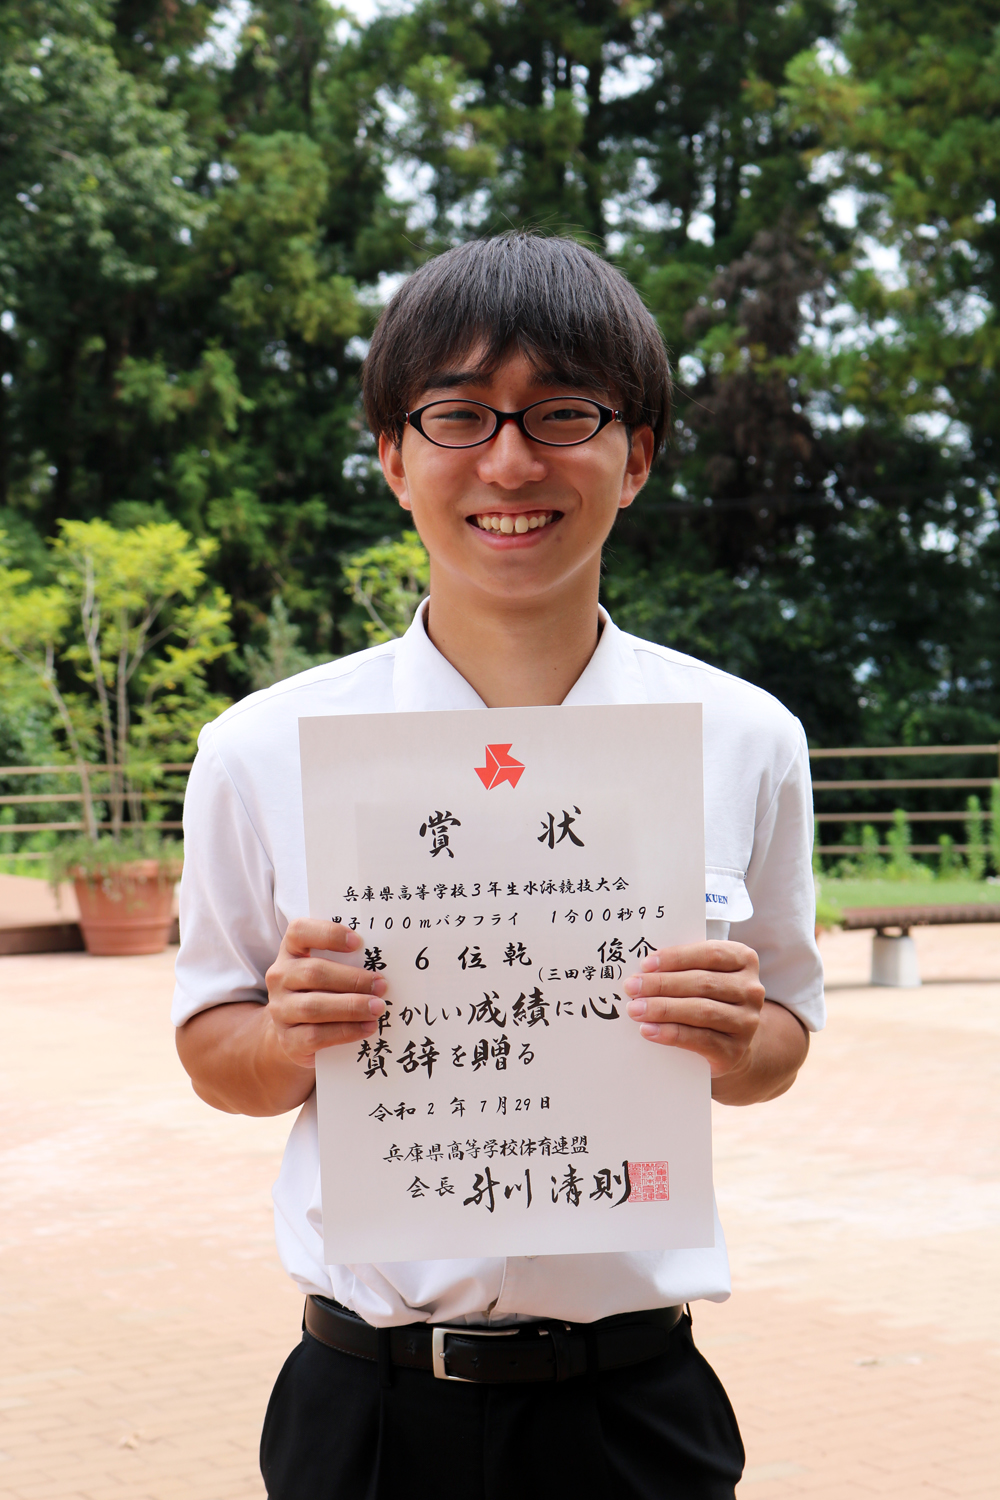 賞 状
兵庫県高等学校3年生水泳競技大会
男子100mバタフライ 1分00秒95
第 6 位 乾 俊介
(三田学園)
かしい成績に心
賛辞を贈る
令和2年7月29日
兵庫県高等学校体育連盟
会長 川 清則
KUEN